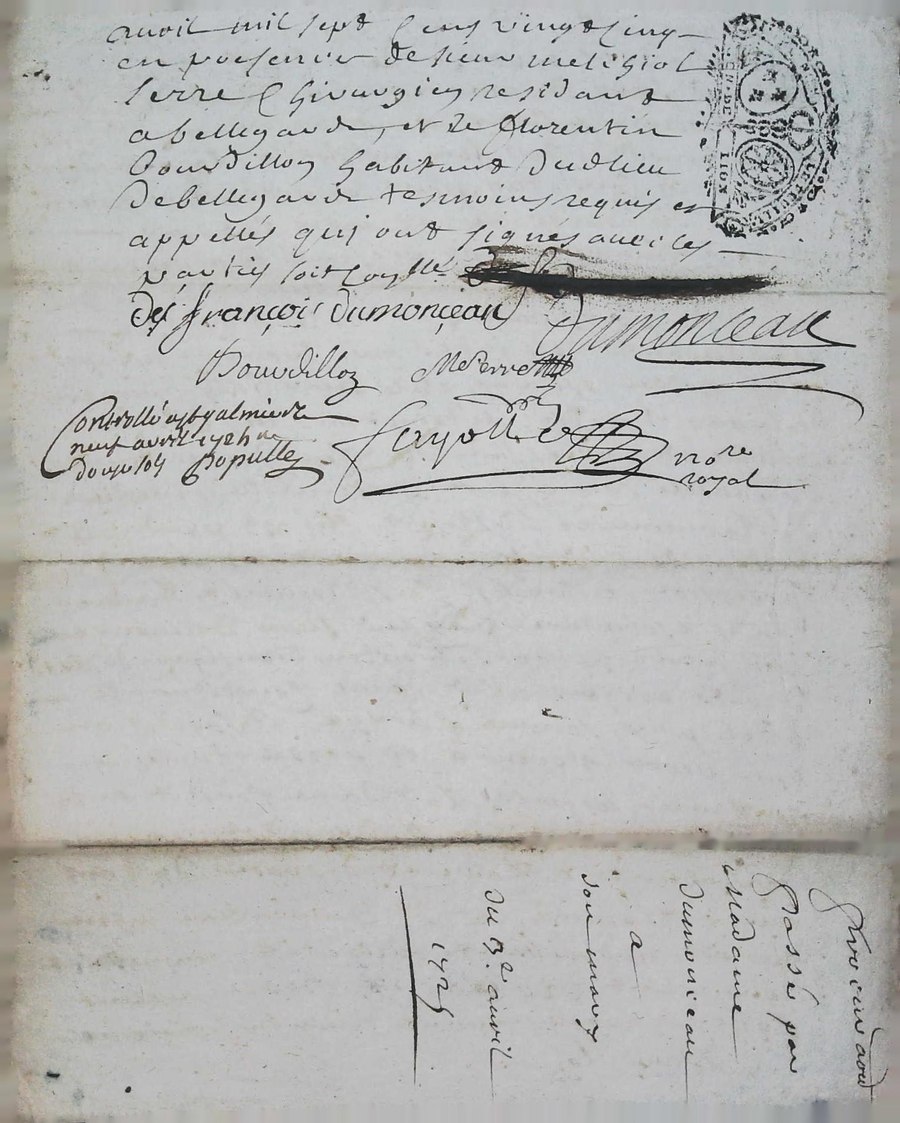 avril mil sept Cens vingt Cinq
en presence de sieur melchiol
serre Chirurgien residant
a bellegarde, et de florentin
Bourdillon habitant dud lieu
de bellegarde tesmoins requis et
appellés qui ont signés avec les
parties
françois dumonçeau
dumonceau
Bourdillon
MSerre
Controllé a st galmier le
neuf avril 1725
Populle
nore
royal
GEN DE LION
LE FEUILLE
procuraon
passé par
Madame
dumonceau
a
son mary
du 3e avril
1725